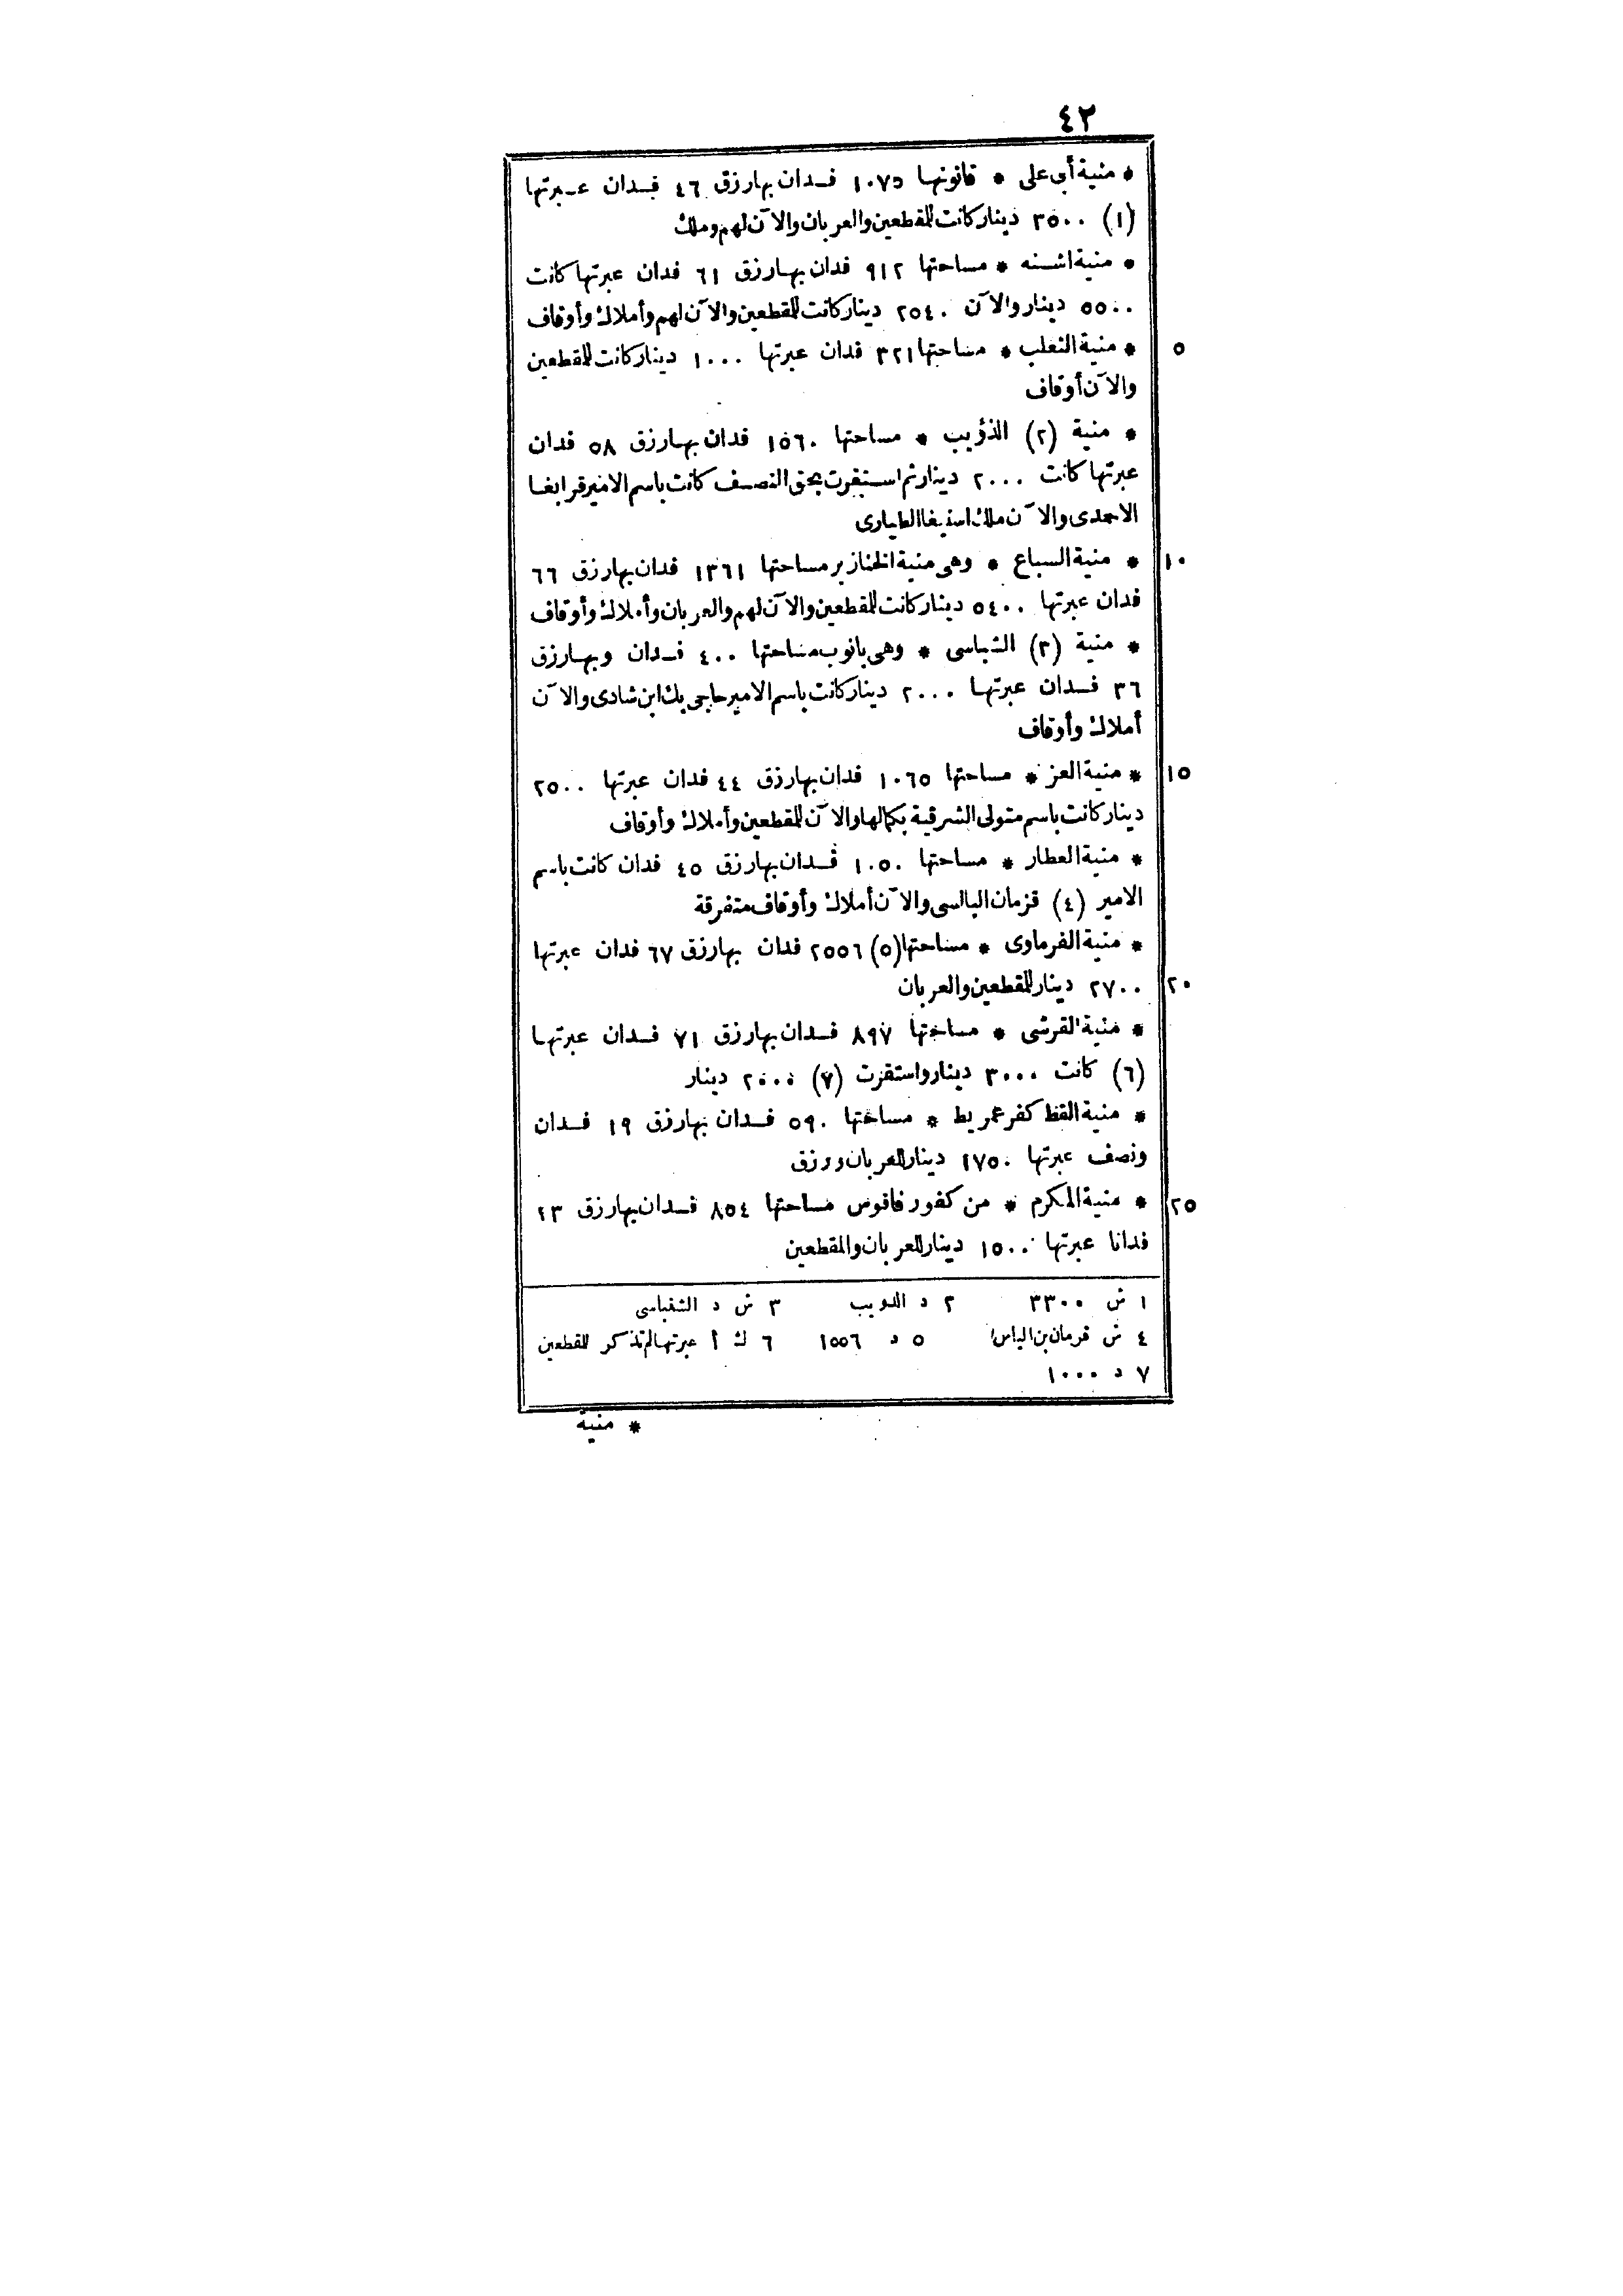 ٤٢
* منية أبى على * قانونها ١٠٧٥ فدان بها رزق ٤٦ فدان عبرتها
(١) ٣٥٠٠ دينار كانت للمقطعين والعربان والآن لهم وملك
* منية اشنه * مساحتها ٩١٢ فدان بها رزق ٦١ فدان عبرتها كانت
٥٥٠٠ دينار والآن ٢٥٤٠ دينار كانت للمقطعين والآن لهم وأملاك وأوقاف
٥ * منية الثعلب * مساحتها ٣٢١ فدان عبرتها ١٠٠٠ دينار كانت للمقطعين
والآن أوقاف
* منية (٢) الذؤيب * مساحتها ١٥٦٠ فدان بها رزق ٥٨ فدان
عبرتها كانت ٢٠٠٠ دينار ثم استقرت بحق النصف كانت باسم الامير قرابغا
الاحمدى والآن ملك اسنبغا الطيارى
١٠ * منية السباع * وهى منية الخنازير مساحتها ١٣٦١ فدان بها رزق ٦٦
فدان عبرتها ٥٤٠٠ دينار كانت للمقطعين والآن لهم والعربان وأملاك وأوقاف
* منية (٣) الشباسى * وهى بانوب مساحتها ٤٠٠ فدان وبها رزق
٣٦ فدان عبرتها ٢٠٠٠ دينار كانت باسم الامير حاجى بك ابن شادى والآن
أملاك وأوقاف
١٥ * منية العز * مساحتها ١٠٦٥ فدان بها رزق ٤٤ فدان عبرتها ٢٥٠٠
دينار كانت باسم متولى الشرقية بكمالها والآن للمقطعين وأملاك وأوقاف
* منية العطار * مساحتها ١٠٥٠ فدان بها رزق ٤٥ فدان كانت باسم
الامير (٤) قزمان البالسى والآن أملاك وأوقاف متفرقة
* منية الفرماوى * مساحتها (٥) ٢٥٥٦ فدان بها رزق ٦٧ فدان عبرتها
٢٠ ٢٧٠٠ دينار للمقطعين والعربان
* منية القرشى * مساحتها ٨٩٧ فدان بها رزق ٧١ فدان عبرتها
(٦) كانت ٣٠٠٠ دينار واستقرت (٧) ٢٠٠٠ دينار
* منية القط كفر عمريط * مساحتها ٥٩٠ فدان بها رزق ١٩ فدان
ونصف عبرتها ١٧٥٠ دينار للعربان ورزق
٢٥ * منية المكرم * من كفور فاقوس مساحتها ٨٥٤ فدان بها رزق ٤٣
فدانا عبرتها ١٥٠٠ دينار للعربان والمقطعين
١ ش ٣٣٠٠ ٢ د الدويب ٣ ش د الشفباسى
٤ ش قرمان بن الياس ٥ د ١٥٥٦ ٦ ك أ عبرتها لم تذكر للمقطعين
٧ د ١٠٠٠
* منية